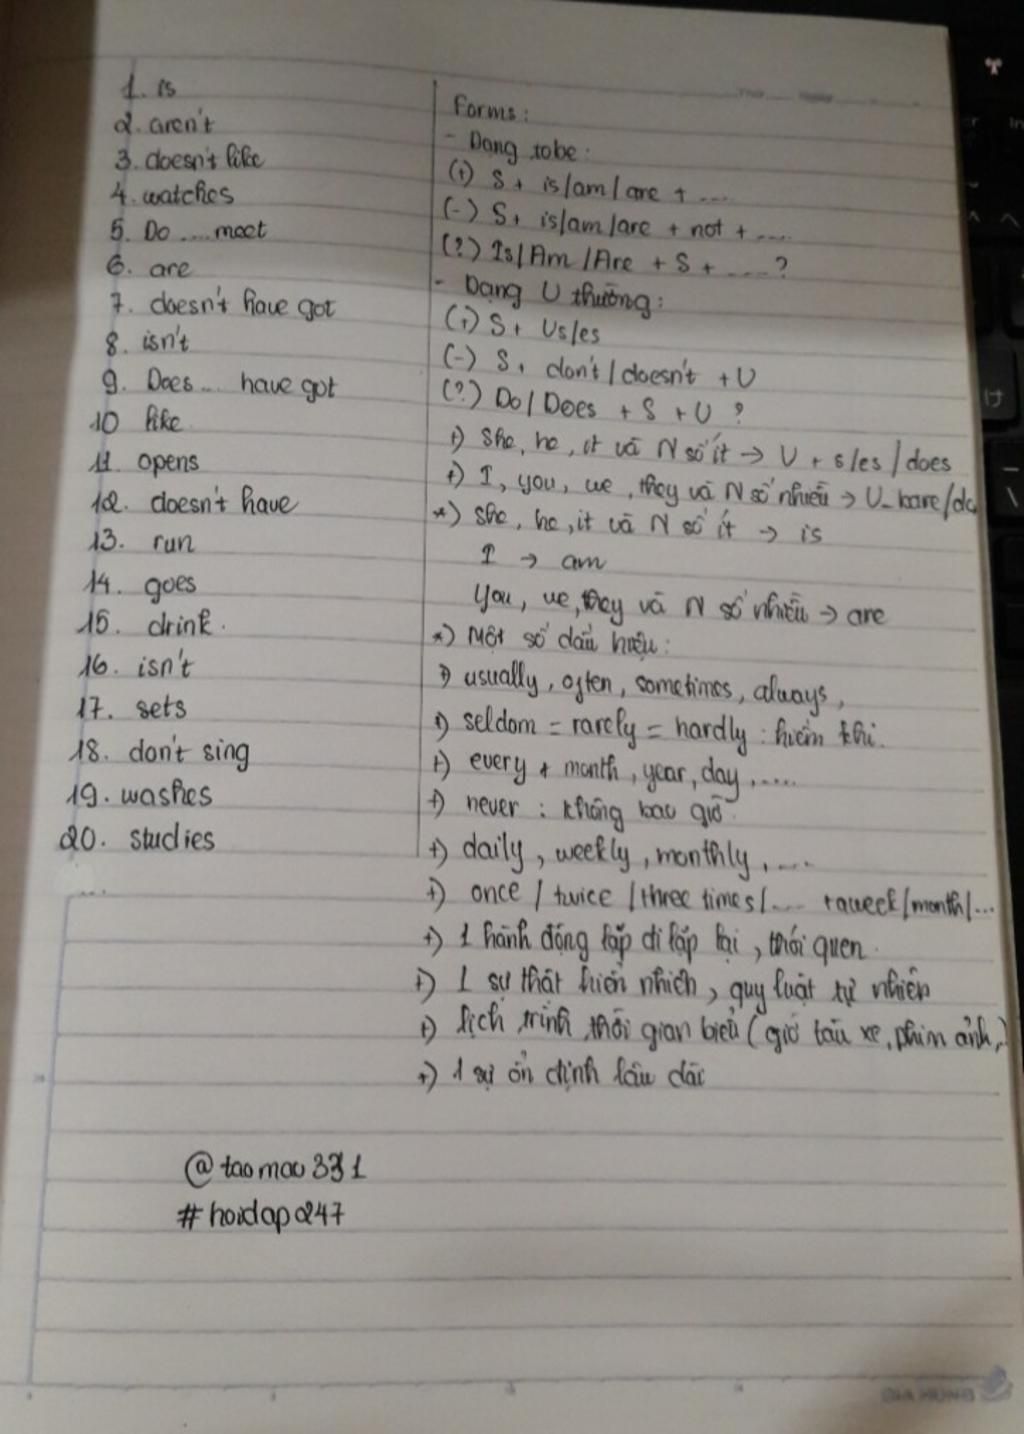 1. is
2. aren't
3. doesn't like
4. watches
5. Do .... meet
6. are
7. doesn't have got
8. isn't
9. Does... have got
10 like
11. opens
12. doesn't have
13. run
14. goes
15. drink.
16. isn't
17. sets
18. don't sing
19. washes
20. studies
Forms:
- Dạng tobe:
(+) S + is/am/are + ....
(-) S + is/am/are + not + ....
(?) Is/Am/Are + S + ....?
- Dạng V thường:
(+) S + Vs/es
(-) S + don't/doesn't + V
(?) Do/Does + S + V ?
+) She, he, it và N số ít → V + s/es/does
+) I, you, we, they và N số nhiều → V_bare/do
*) She, he, it và N số ít → is
I → am
You, we, they và N số nhiều → are
*) Một số dấu hiệu:
+) usually, often, sometimes, always,
+) seldom = rarely = hardly : hiếm khi.
+) every + month, year, day, .....
+) never : không bao giờ.
+) daily, weekly, monthly, ....
+) once / twice / three times/.... + a week/month/...
+) 1 hành động lặp đi lặp lại, thói quen.
+) 1 sự thật hiển nhiên, quy luật tự nhiên
+) lịch trình, thời gian biểu (giờ tàu xe, phim ảnh,)
+) 1 sự ổn định lâu dài
@taomau3331
#hoidap247
GIA HƯNG